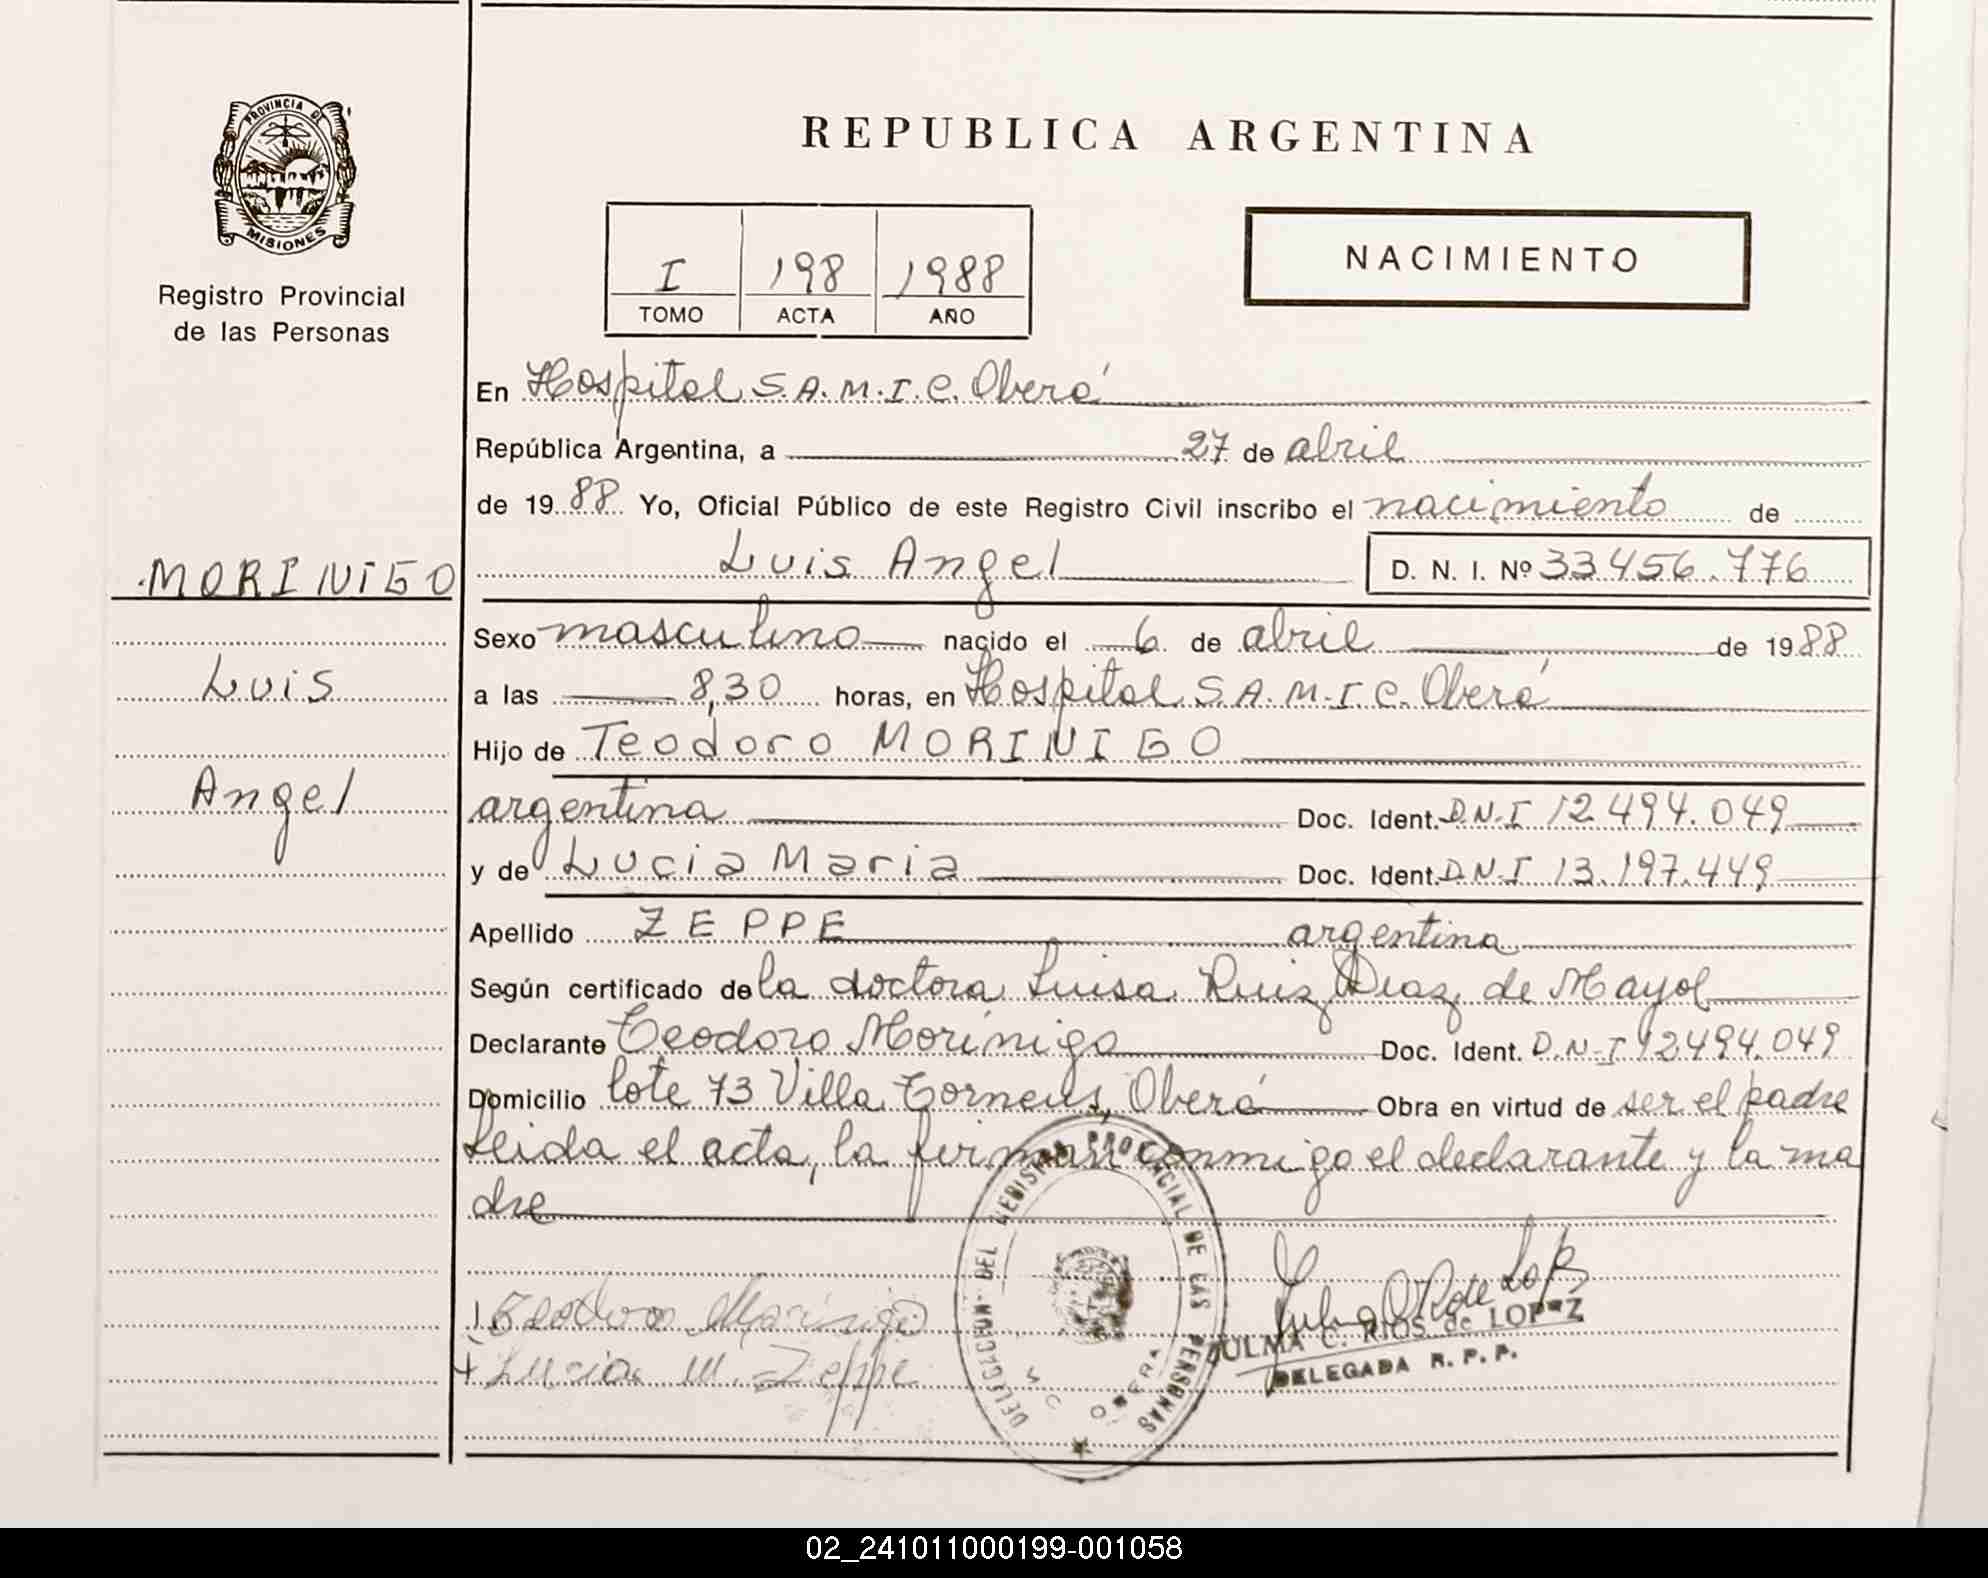 PROVINCIA DE
MISIONES
Registro Provincial
de las Personas
MORINIGO
Luis
Angel
REPUBLICA ARGENTINA
I 198 1988
TOMO ACTA AÑO
NACIMIENTO
En Hospital S.A.M.I.C. Oberá
República Argentina, a 27 de abril
de 1988 Yo, Oficial Público de este Registro Civil inscribo el nacimiento de
Luis Angel D. N. I. Nº 33456.776
Sexo masculino nacido el 6 de abril de 1988
a las 8,30 horas, en Hospital S.A.M.I.C. Oberá
Hijo de Teodoro MORINIGO
argentina Doc. Ident. D.N.I 12.494.049
y de Lucia Maria Doc. Ident. D.N.I 13.197.449
Apellido ZEPPE argentina
Según certificado de la doctora Luisa Ruiz Diaz de Mayol
Declarante Teodoro Morinigo Doc. Ident. D.N.I 12494.049
Domicilio lote 73 Villa Oberá Obra en virtud de ser el padre
Leida el acta, la firman conmigo el declarante y la ma
dre
Teodoro Morinigo
Lucia M. Zeppe
DELEGACION DEL REGISTRO PROVINCIAL DE LAS PERSONAS
OBERA
JULMA C. RIOS de LOPEZ
DELEGADA R. P. P.
02_241011000199-001058